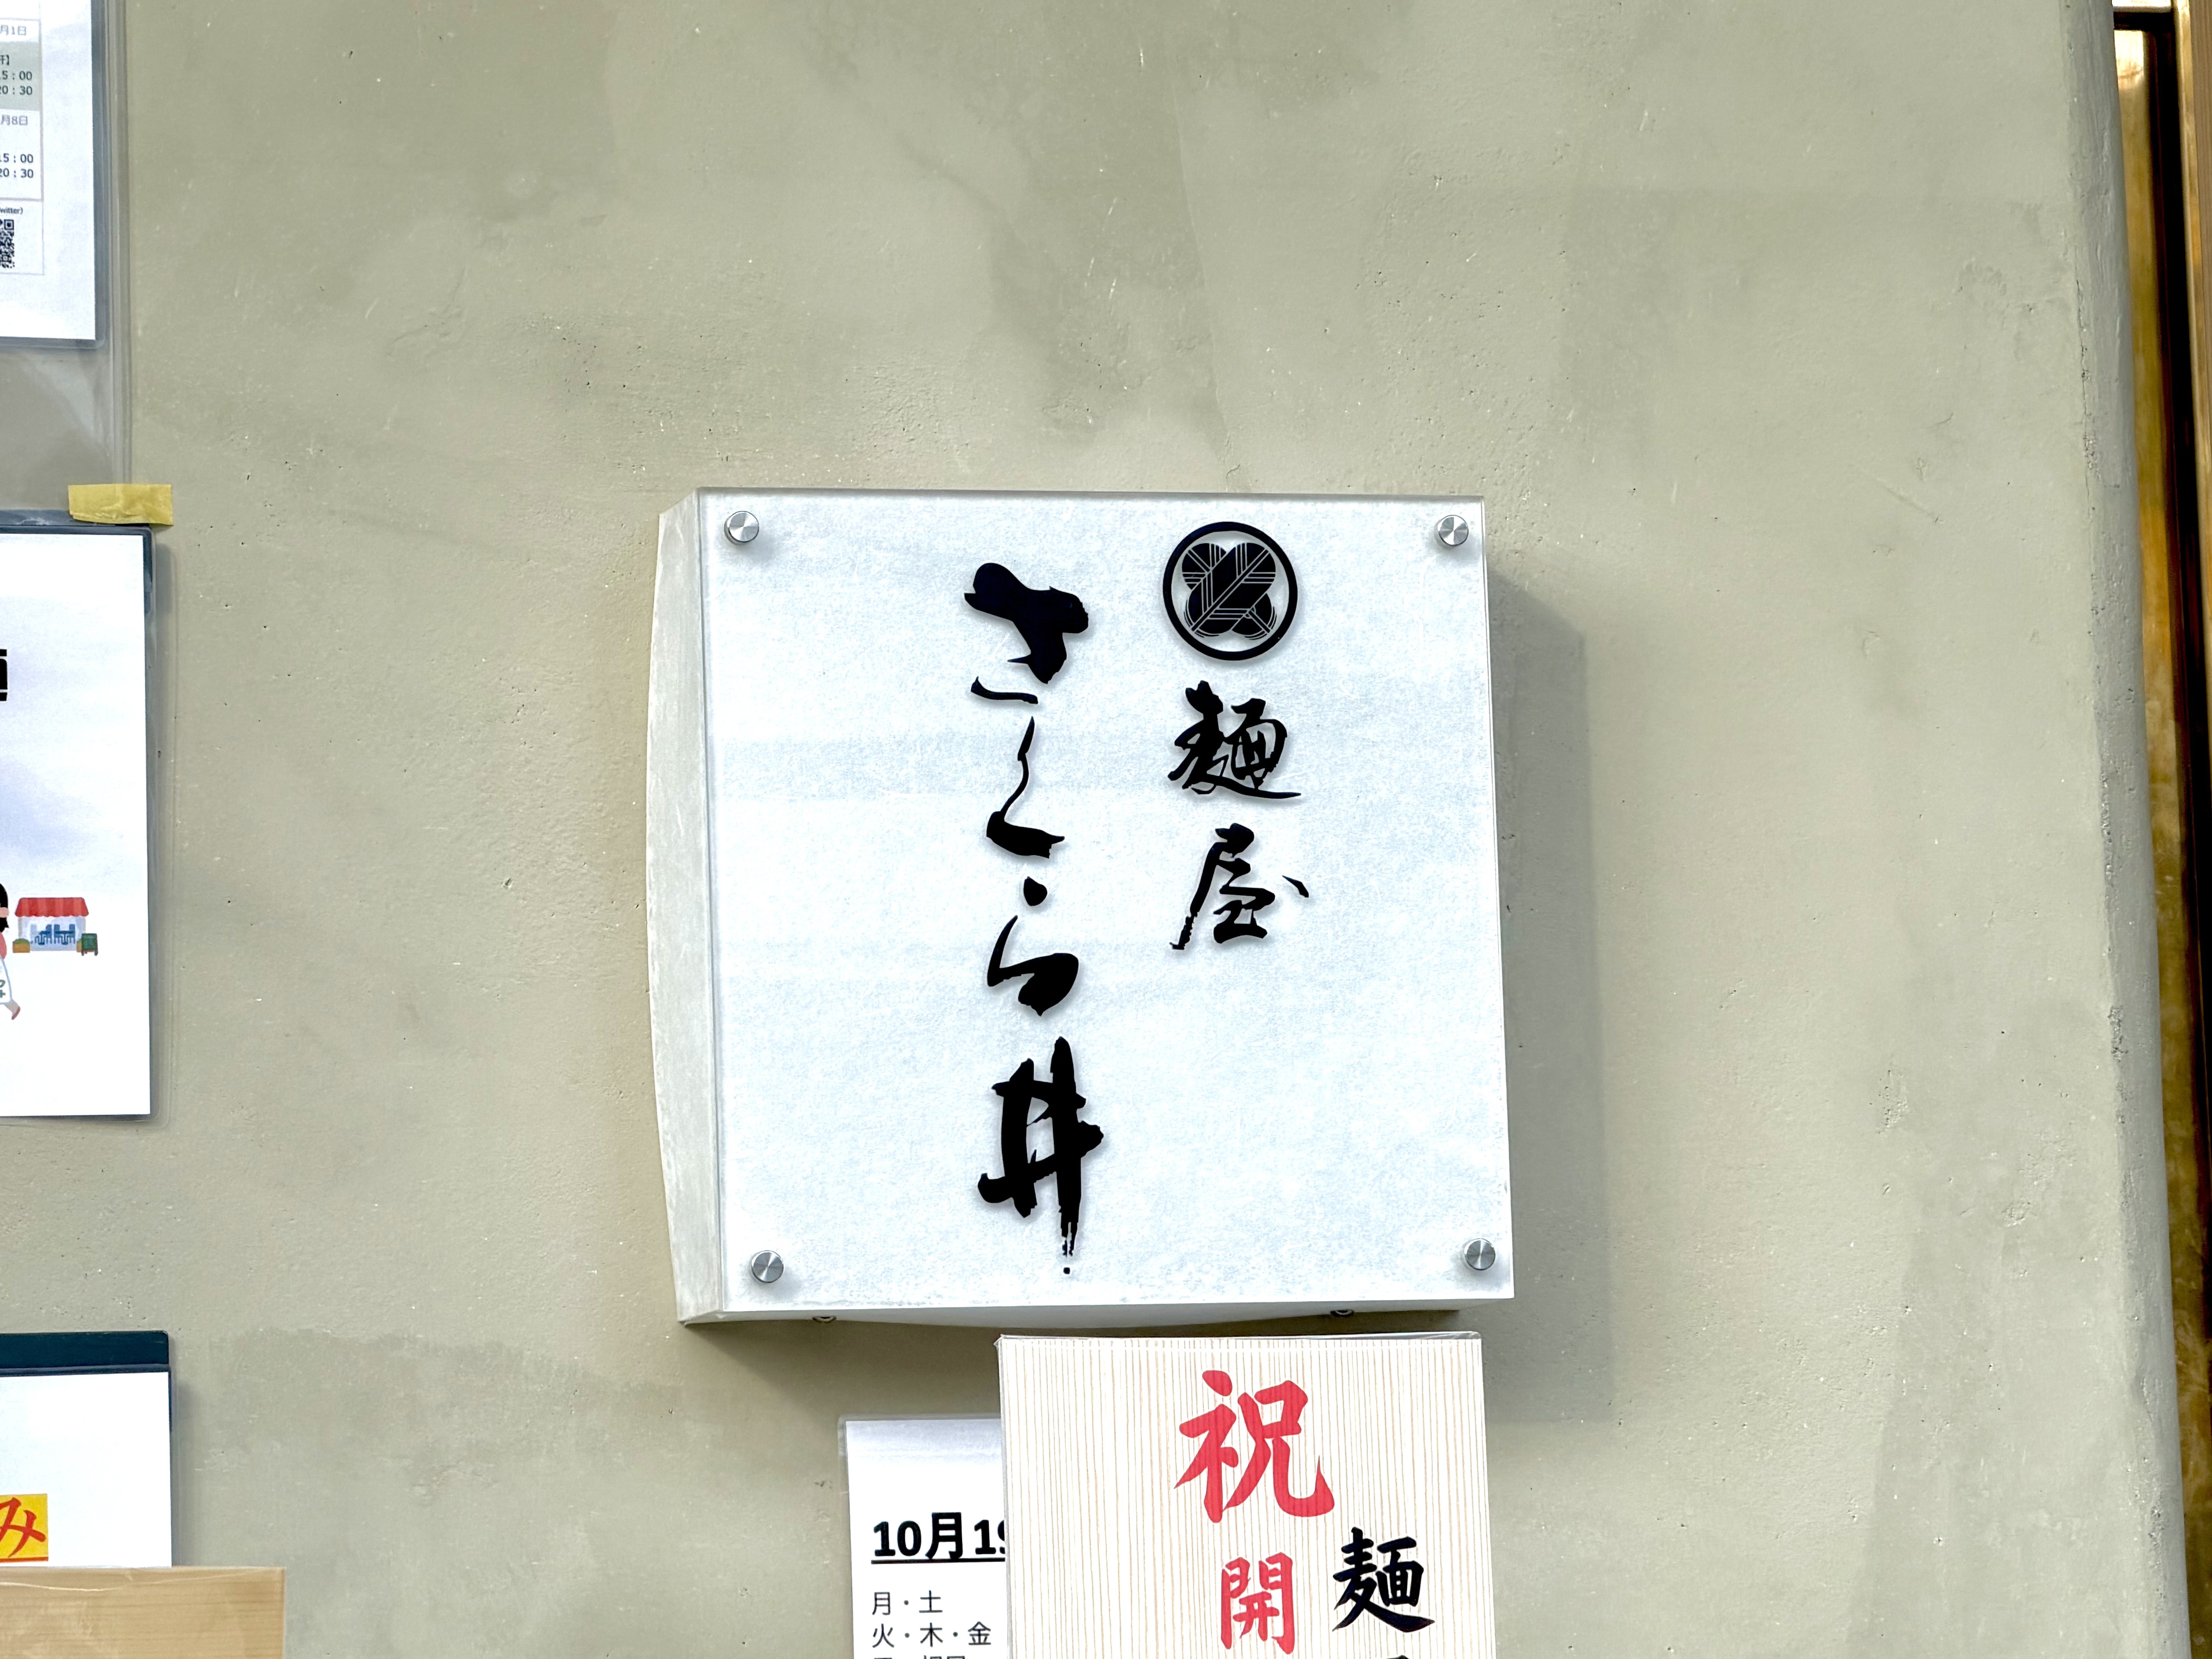 麺屋
さくら井
祝
開
麺
10月19
月・土
火・木・金
月1日
5：00
20：30
月8日
15：00
20：30
witter)
み